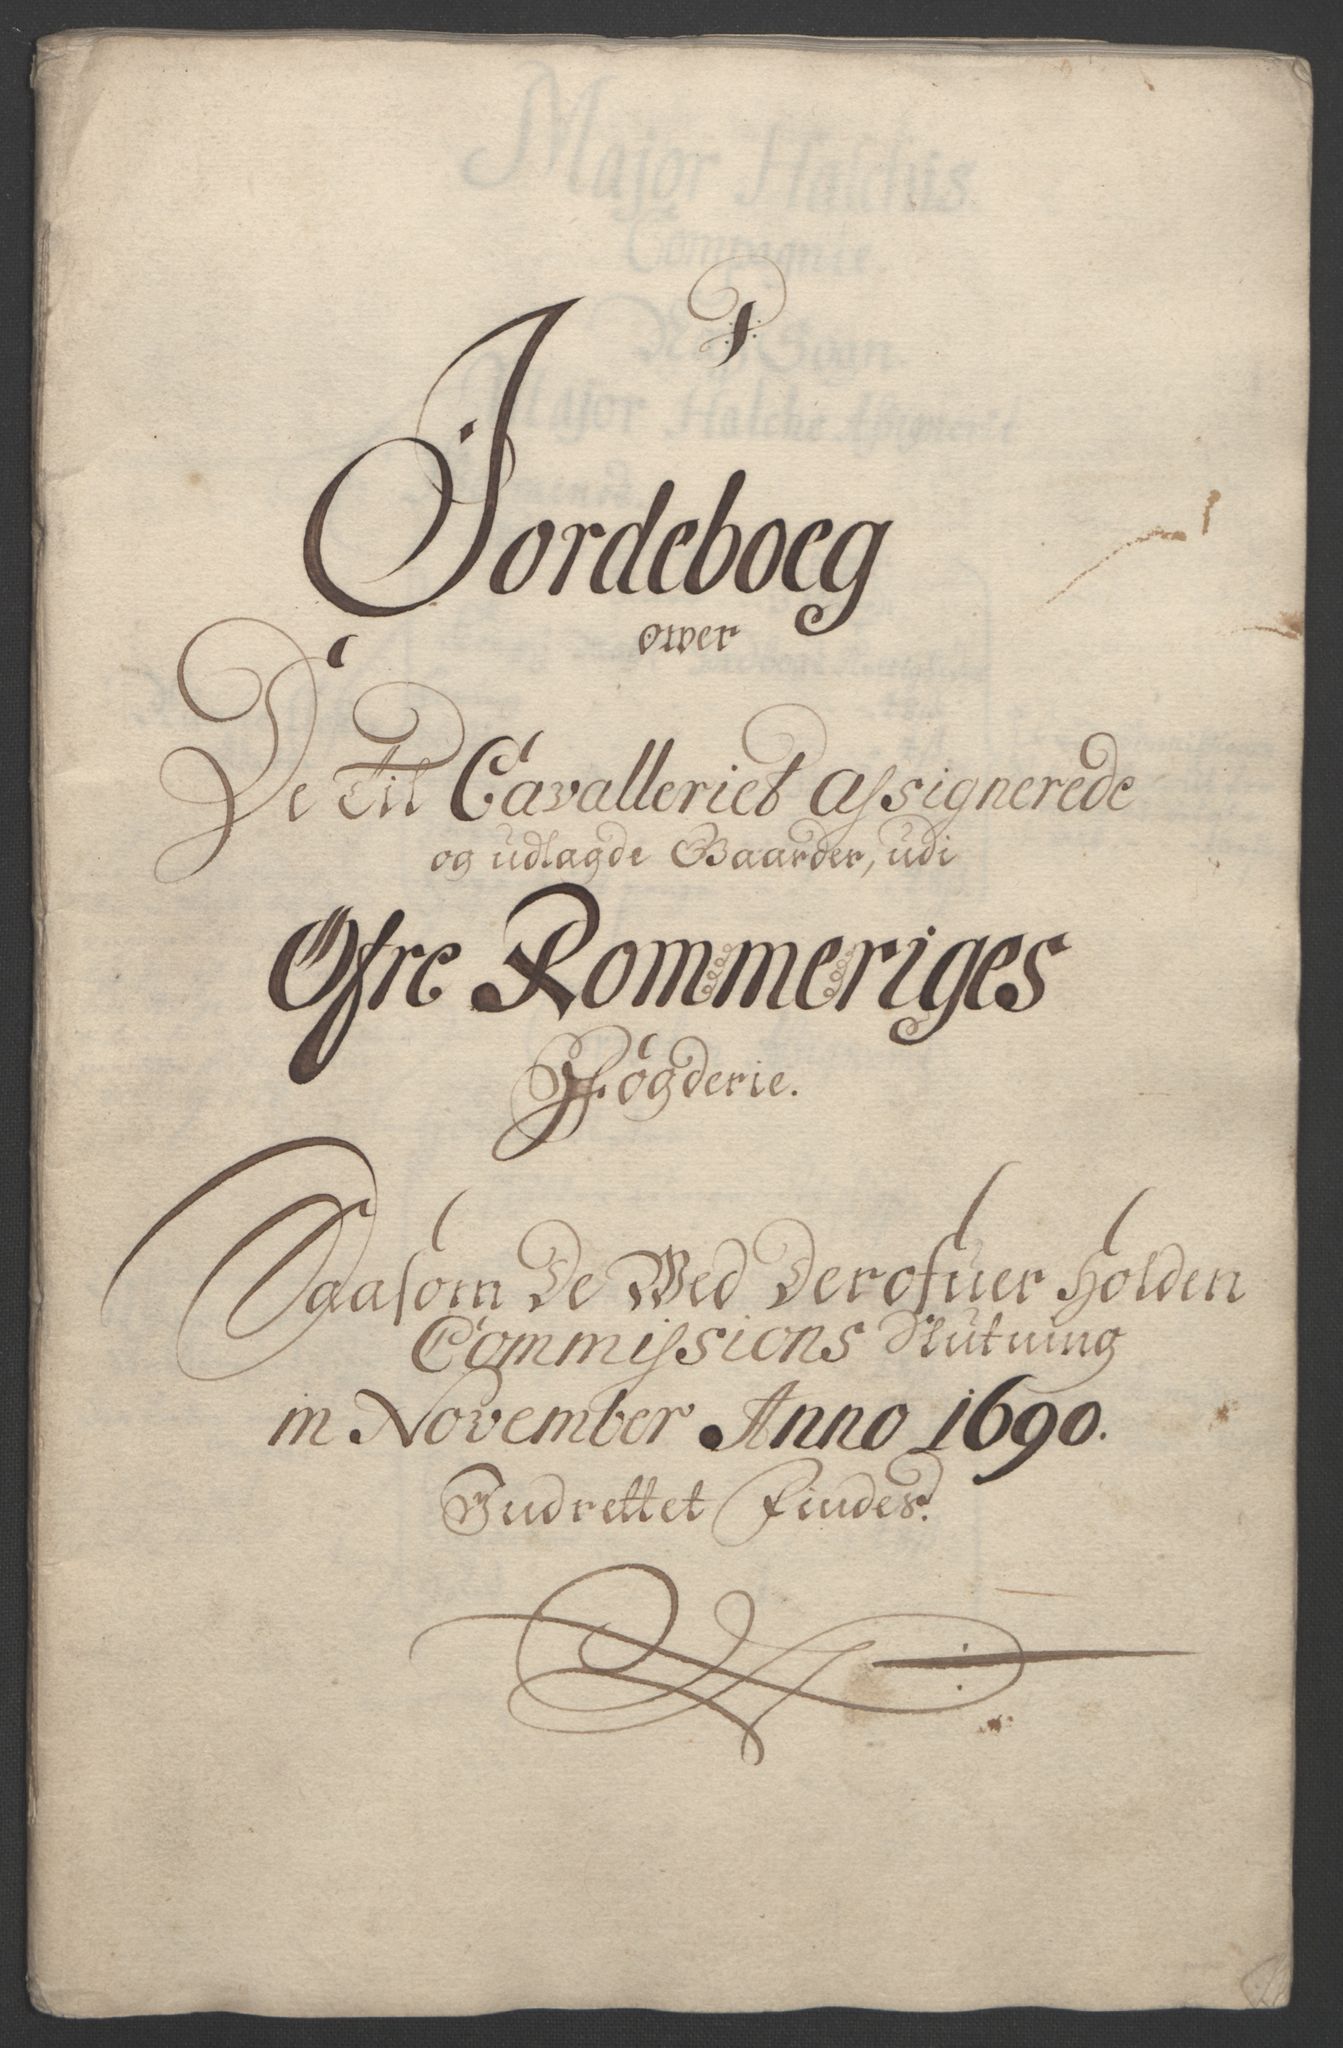 Jordeboeg
ower
De Til Cavalleriet assignerede
og udlagde Gaarder, udi
Øfre Rommeriges
Fögderie.
Saasom De Wed Derofuer holden
Commissions Slutning
in November Anno 1690.
Indrettet Findes.